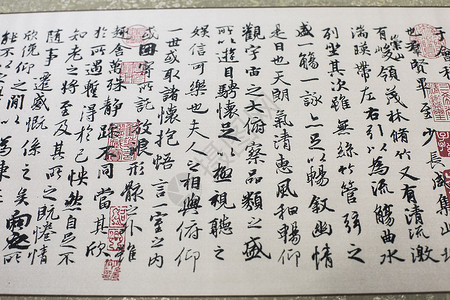 也羣賢畢至少長咸集此
有崇山峻領茂林脩竹又有清流激
湍暎帶左右引以為流觴曲水
列坐其次雖無絲竹管弦之
盛一觴一詠亦足以暢敘幽情
是日也天朗氣清惠風和暢仰
觀宇宙之大俯察品類之盛
所以遊目騁懷足以極視聽之
娛信可樂也夫人之相與俯仰
一世或取諸懷抱悟言一室之內
或因寄所託放浪形骸之外雖
趣舍萬殊靜躁不同當其欣
於所遇蹔得於己怏然自足不
知老之將至及其所之既惓情
隨事遷感慨係之矣向之所
欣俛仰之間以為
能不以之